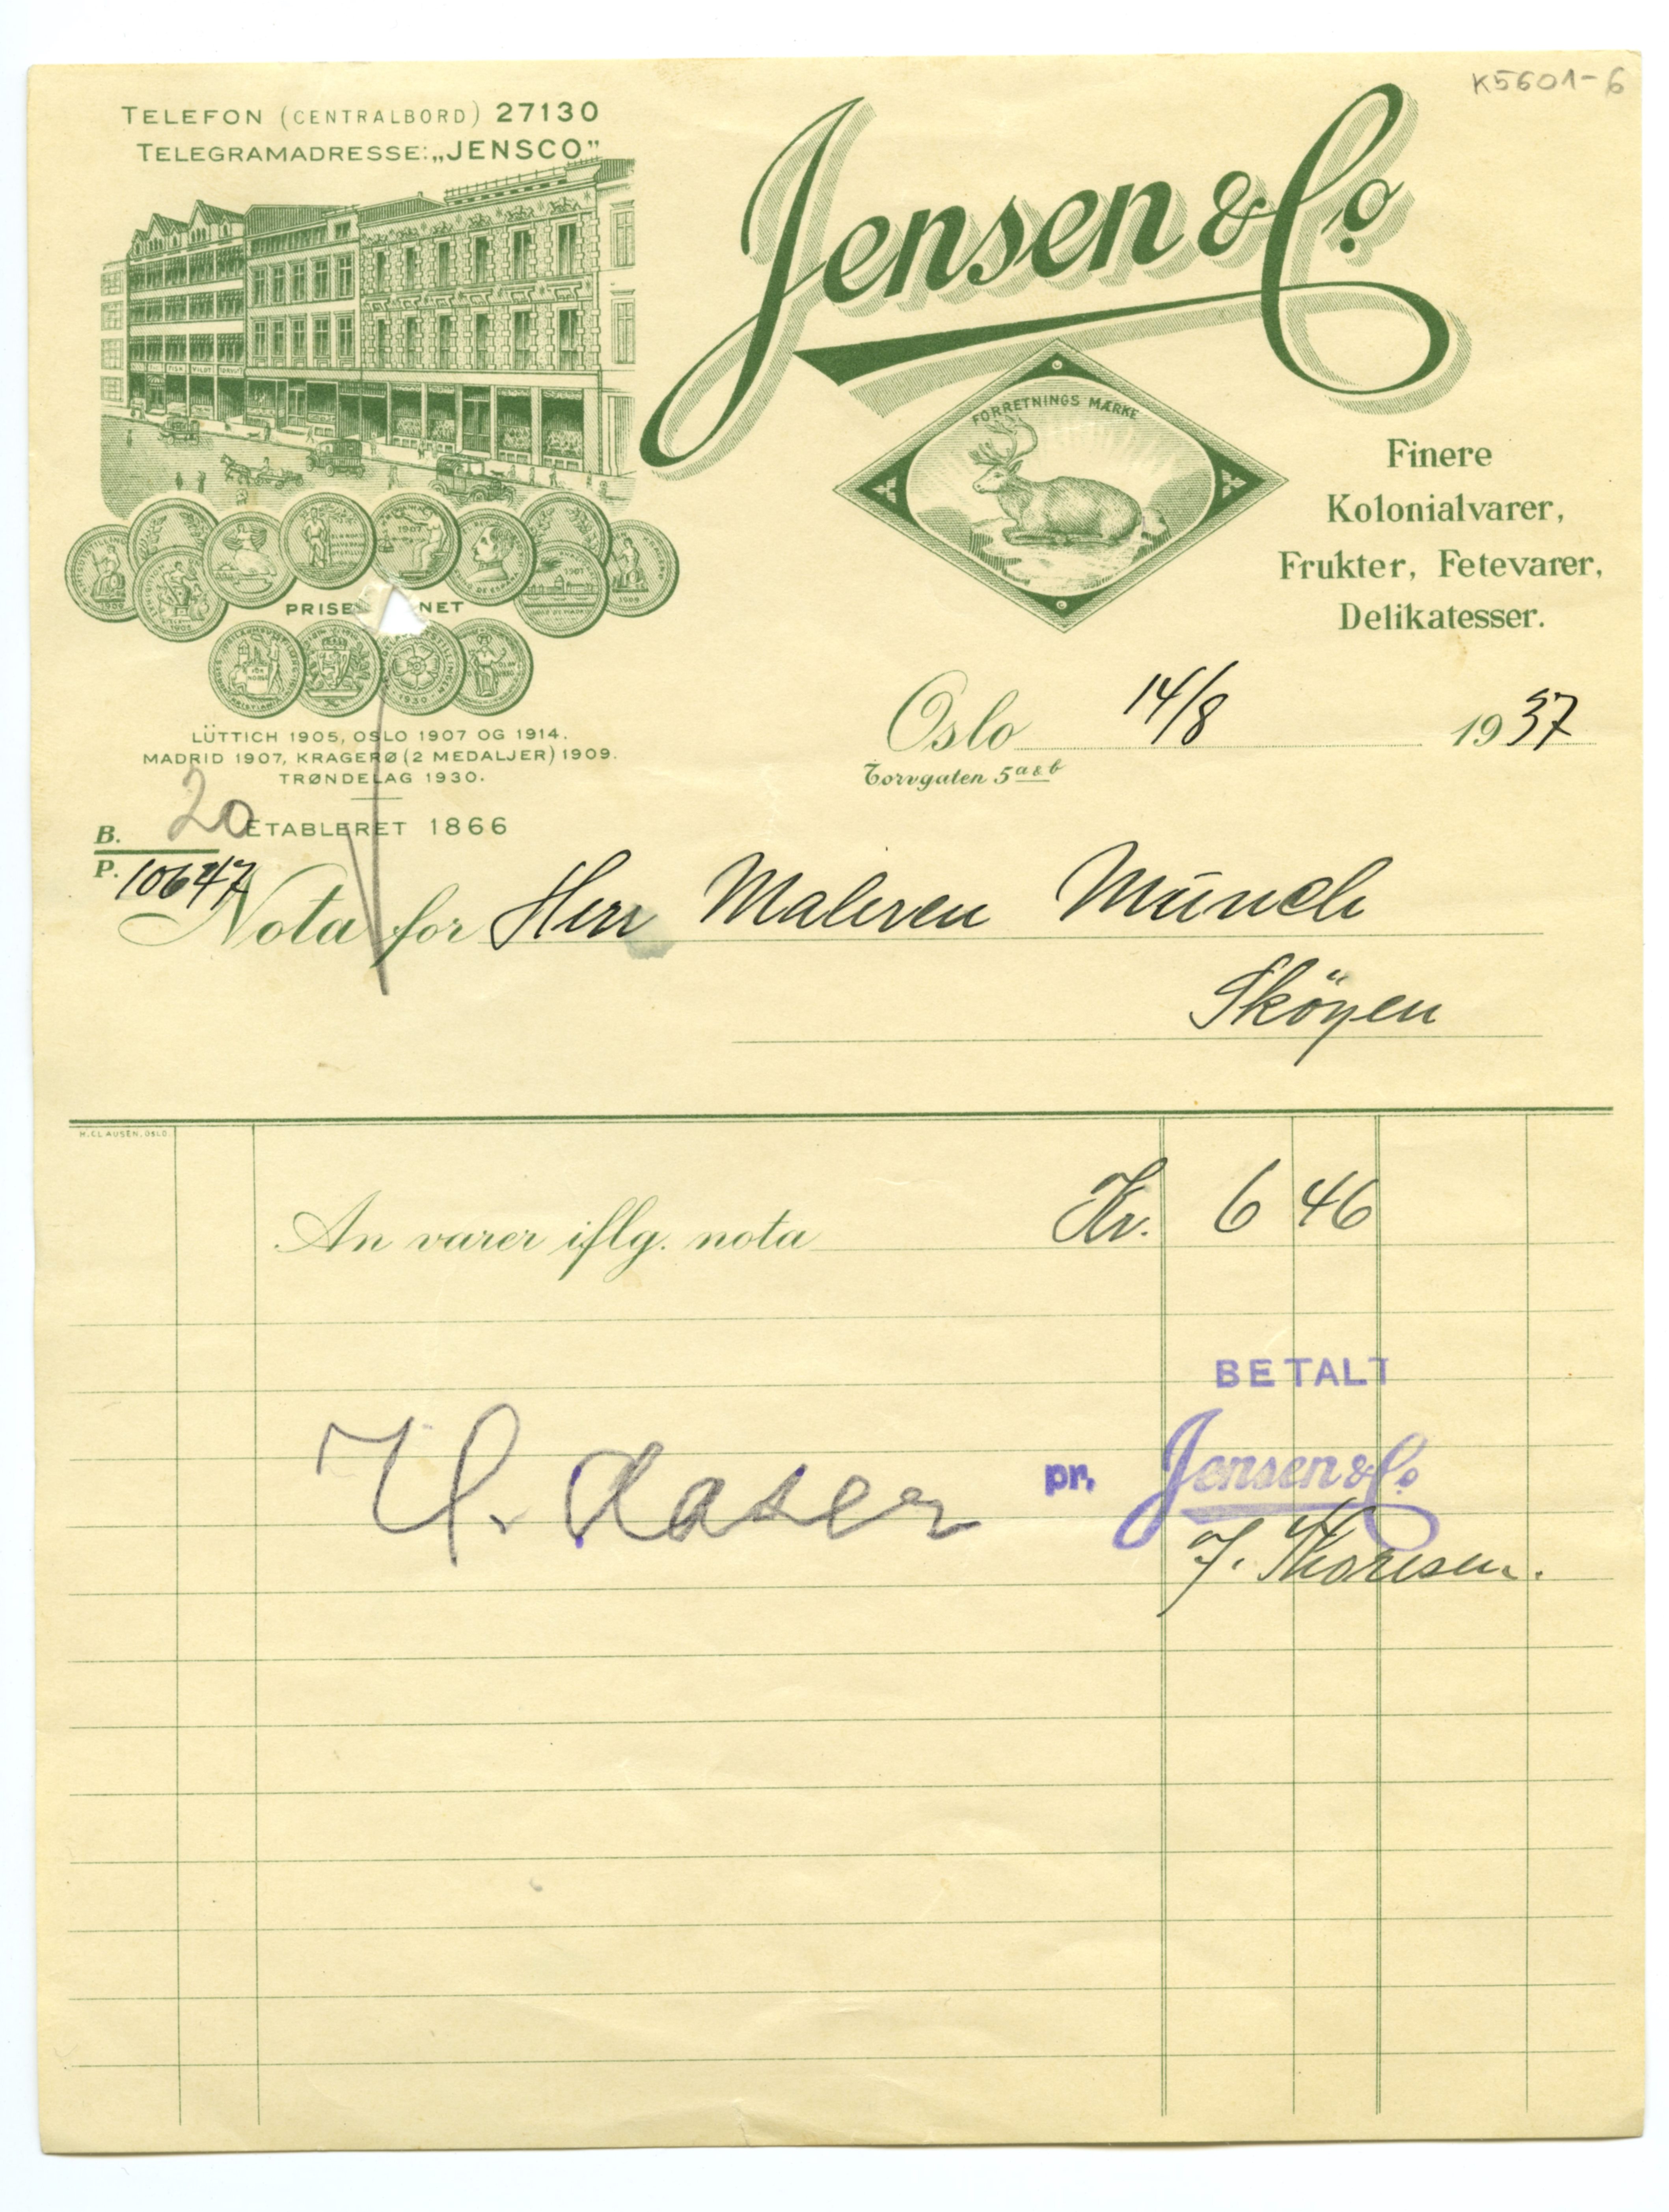 K5601-6
TELEFON (CENTRALBORD) 27130
TELEGRAMADRESSE: „JENSCO"
Jensen & Co
FORRETNINGS MÆRKE
Finere
Kolonialvarer,
Frukter, Fetevarer,
Delikatesser.
PRISE NET
LÜTTICH 1905, OSLO 1907 OG 1914.
MADRID 1907, KRAGERØ (2 MEDALJER) 1909.
TRØNDELAG 1930.
ETABLERET 1866
Oslo 14/8 1937
Torvgaten 5 a & b
B. 20
P. 10647
Nota for Herr Maleren Münch
Sköyen
H. CLAUSEN, OSLO.
An varer iflg. nota Kr. 6 46
BETALT
pr. Jensen & Co
J. Thoresen.